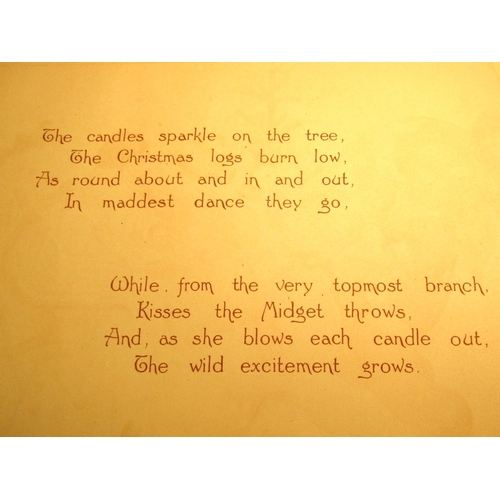 The candles sparkle on the tree,
The Christmas logs burn low,
As round about and in and out,
In maddest dance they go,
While from the very topmost branch,
Kisses the Midget throws,
And, as she blows each candle out,
The wild excitement grows.